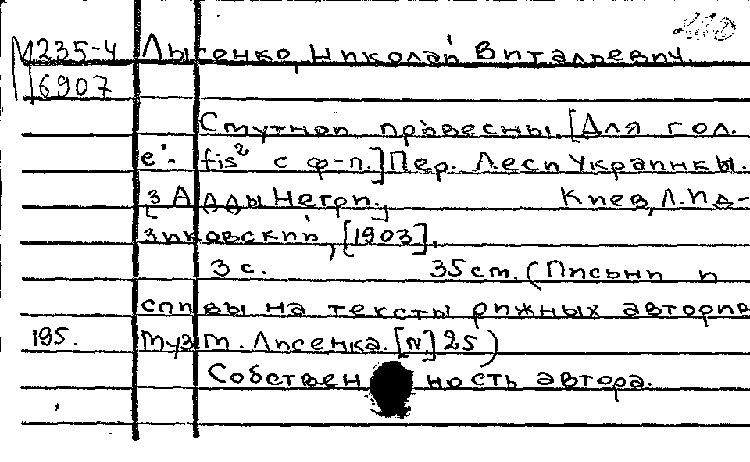 М 235-4 Лысенко, Николай Витальевич.
6907
Смутнои провесны. [Для гол.
e'- fis² с ф-п.] Пер. Леси Украинкы.
[з Ады Негри.] Киев, Л. Ид-
зиковский, [1903].
3 с. 35 cm. (Письни и
спивы на тексты рижных авторив
195. муз М. Лисенка. [N] 25)
Собственность автора.